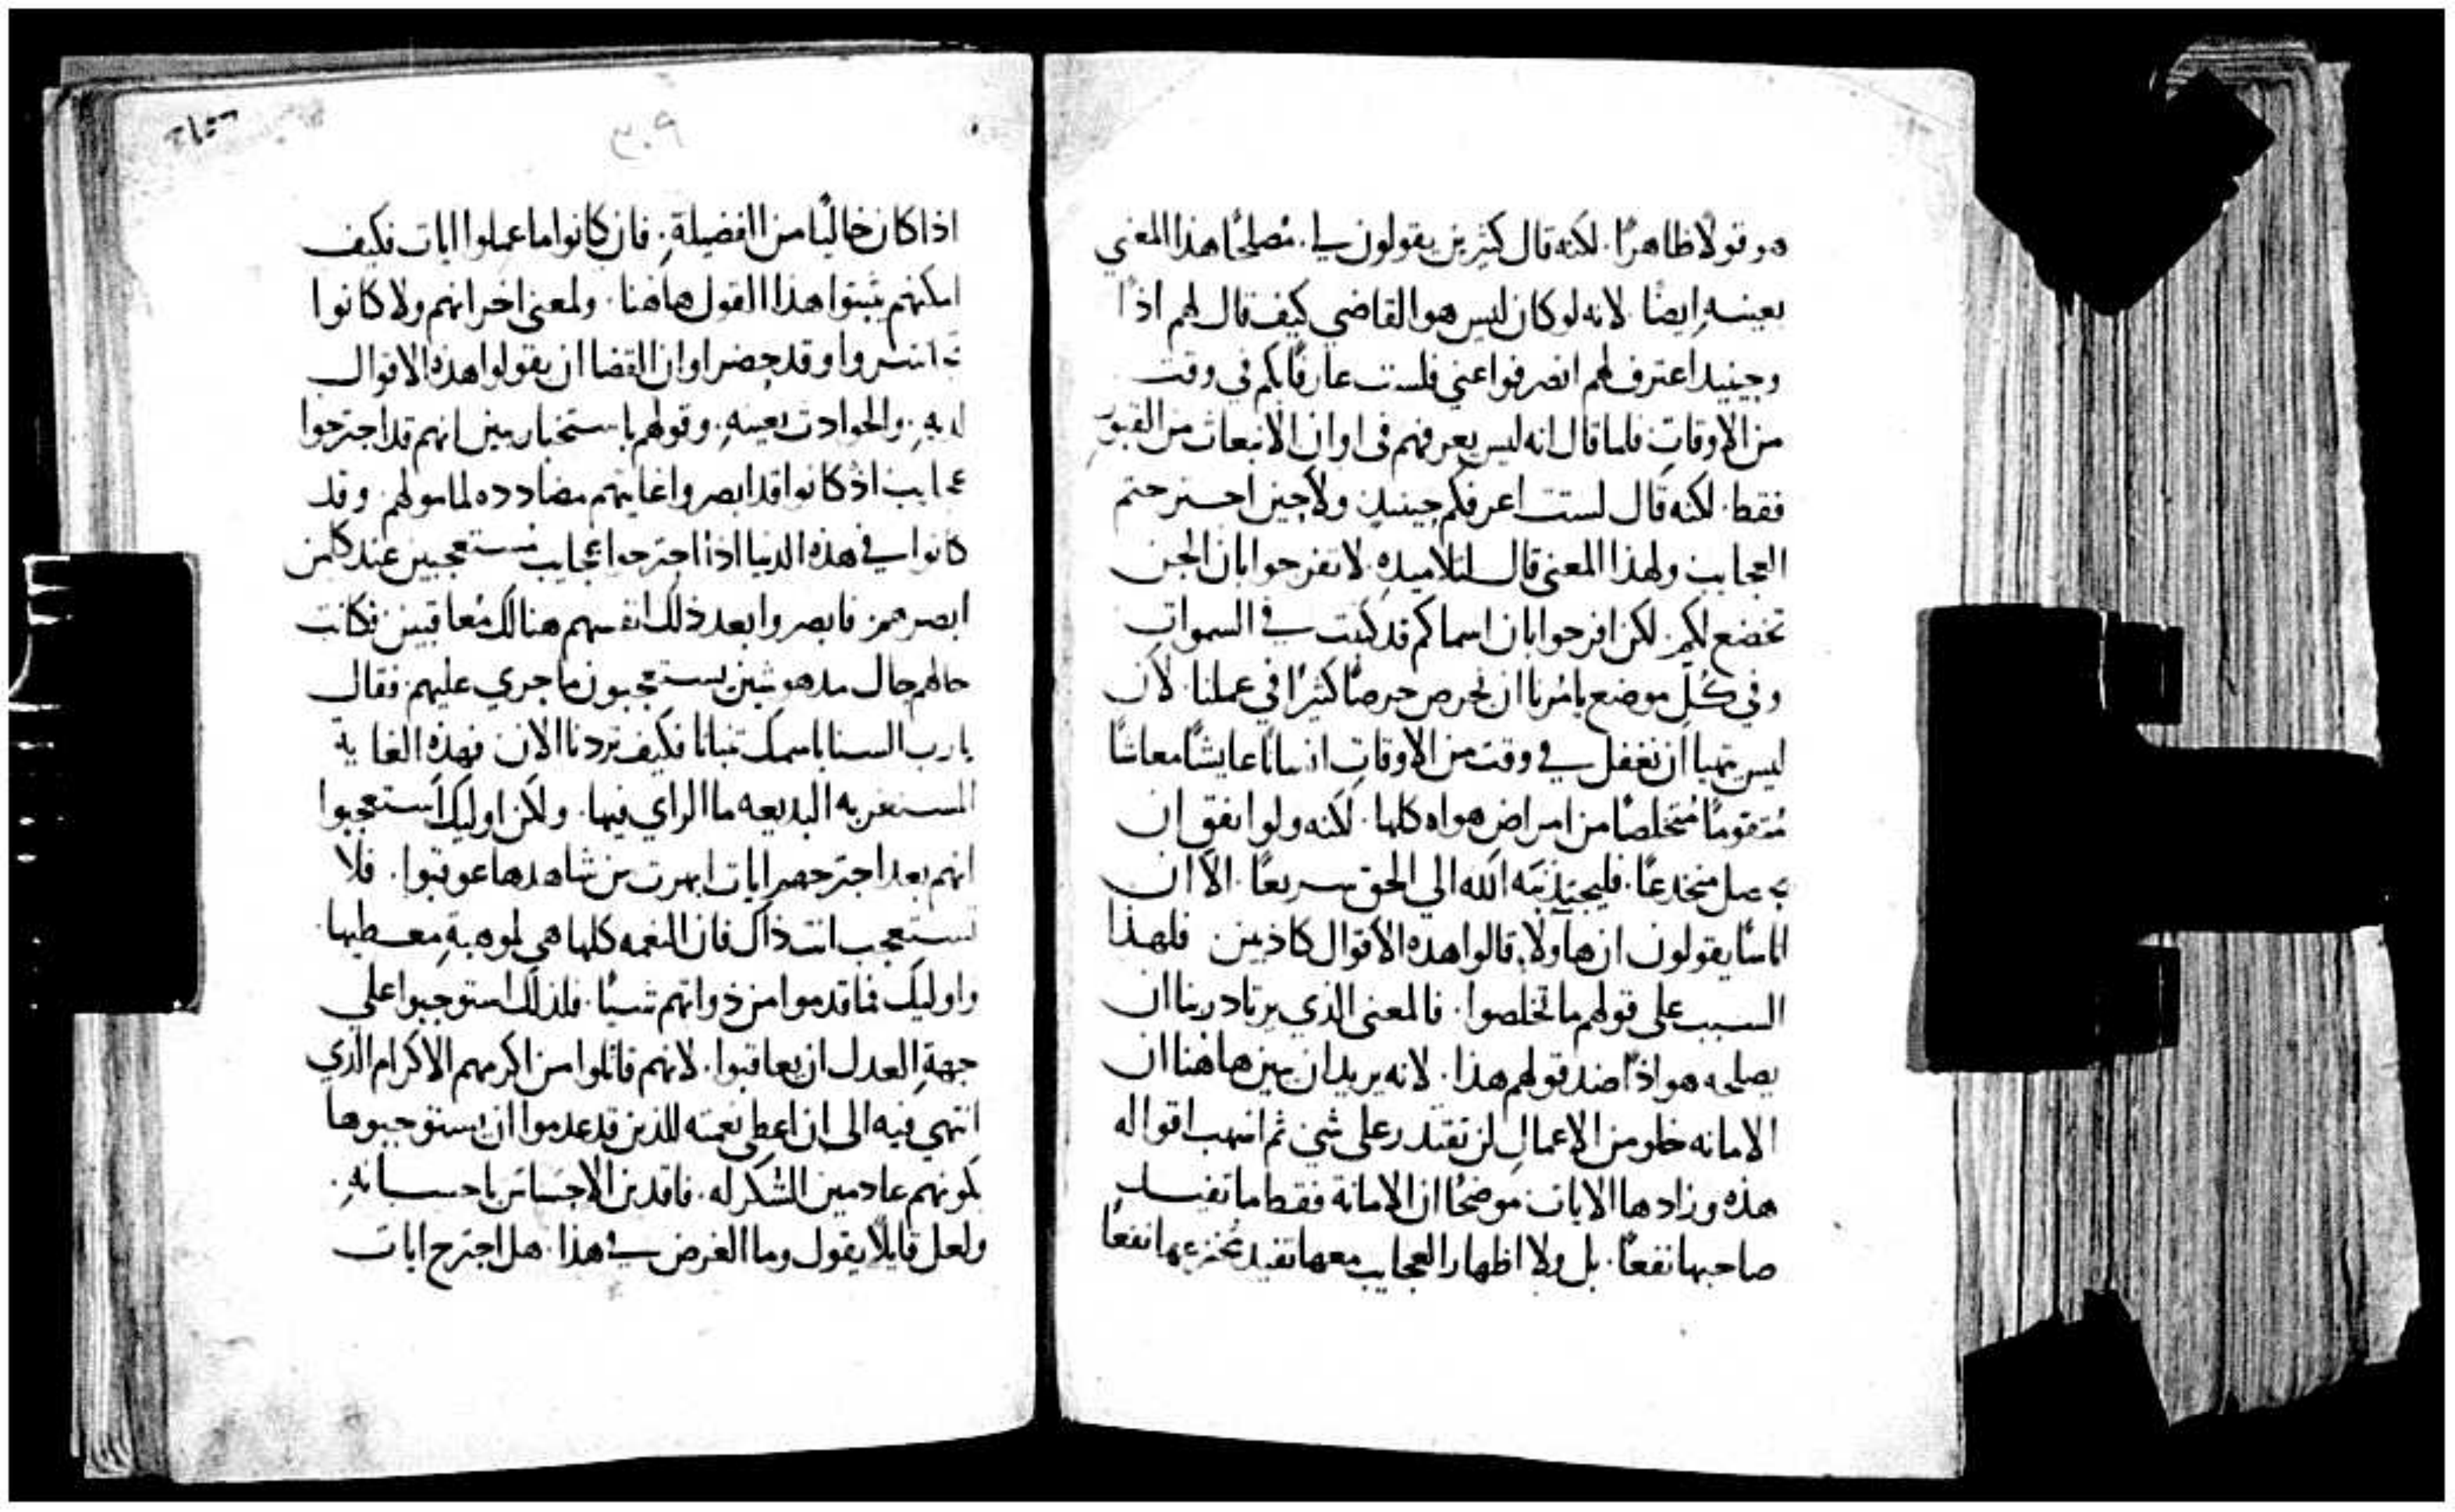 هو قولًا ظاهرًا. لكنه قال كثيرين يقولون لي. مصلحًا هذا المعني
بعينه ايضًا. لانه لو كان ليس هو القاضي كيف قال لهم اذًا
وحينيد اعترف لهم انصرفوا عني فلست عارفًا بكم في وقت
من الاوقات فلما قال انه ليس يعرفهم في اوان الانبعاث من القبور
فقط. لكنه قال لست اعرفكم حينيذ ولا حين اجترحتم
العجايب ولهذا المعني قال لتلاميذه. لا تفرحوا بان الجن
تخضع لكم. لكن افرحوا بان اسماكم قد كتبت في السموات
وفي كل موضع يامرنا ان نحرص حرصًا كثيرًا في عملنا. لان
ليس يتهيا ان نغفل في وقت من الاوقات انسانًا عايشًا معاشًا
متقومًا متخلصًا من امراض هواه كلها. لكنه ولو اتفق ان
يحصل منخدعًا. فليجتذبنه الله الي الحق سريعًا. الا ان
اناسًا يقولون ان هاولا قالوا هذه الاقوال كاذبين فلهذا
السبب علي قولهم ما تخلصوا. فالمعني الذي يرتاد ربنا ان
يصلحه هو اذًا ضد قولهم هذا. لانه يريد ان يبين هاهنا ان
الامانه خلو من الاعمال لن تقتدر علي شي ثم اسهب اقواله
هذه وزادها الايات موضحًا ان الامانة فقط ما تفيد
صاحبها نفعًا. بل ولا اظهار العجايب معها تفيد مخترعها نفعًا
٣٠٩
اذا كان خاليًا من الفضيلة. فان كانوا ما عملوا ايات فكيف
امكنهم يثبتوا هذا القول هاهنا. ولمعني اخر انهم ولا كانوا
وقد حضر اوان القضا ان يقولوا هذه الاقوال
لديه. والحوادث بعينه. وقولهم باستخبار يبين انهم قد اجترحوا
عجايب اذ كانوا قد ابصروا غايتهم مضادده لمامولهم. وقد
كانوا في هذه الدنيا اذا اجترحوا عجايب مستعجبين عند كلمن
ابصرهم. فابصروا بعد ذلك انفسهم هنالك معاقبين فكانت
حالهم حال مدهوشين يستعجبون ما جري عليهم. فقال
يارب السنا باسمك تنبانا فكيف تردنا الان فهذه الغاية
المستغربه البديعه ما الراي فيها. ولكن اوليك استعجبوا
انهم بعد اجتراحهم ايات ابهرت من شاهدها عوقبوا. فلا
تستعجب انت ذاك فان النعمه كلها هي لموهبة معطيها.
واوليك فما قدموا من ذواتهم شيًا. فلذلك استوجبوا علي
جهة العدل ان يعاقبوا. لانهم قابلوا من اكرمهم الاكرام الذي
انتهي فيه الي ان اعطي نعمته للذين قد عدموا ان يستوجبوها
لكونهم عادمين الشكر له. فاقدين الاحساس باحسانه.
ولعل قايلًا يقول وما الغرض في هذا. هل اجترح ايات